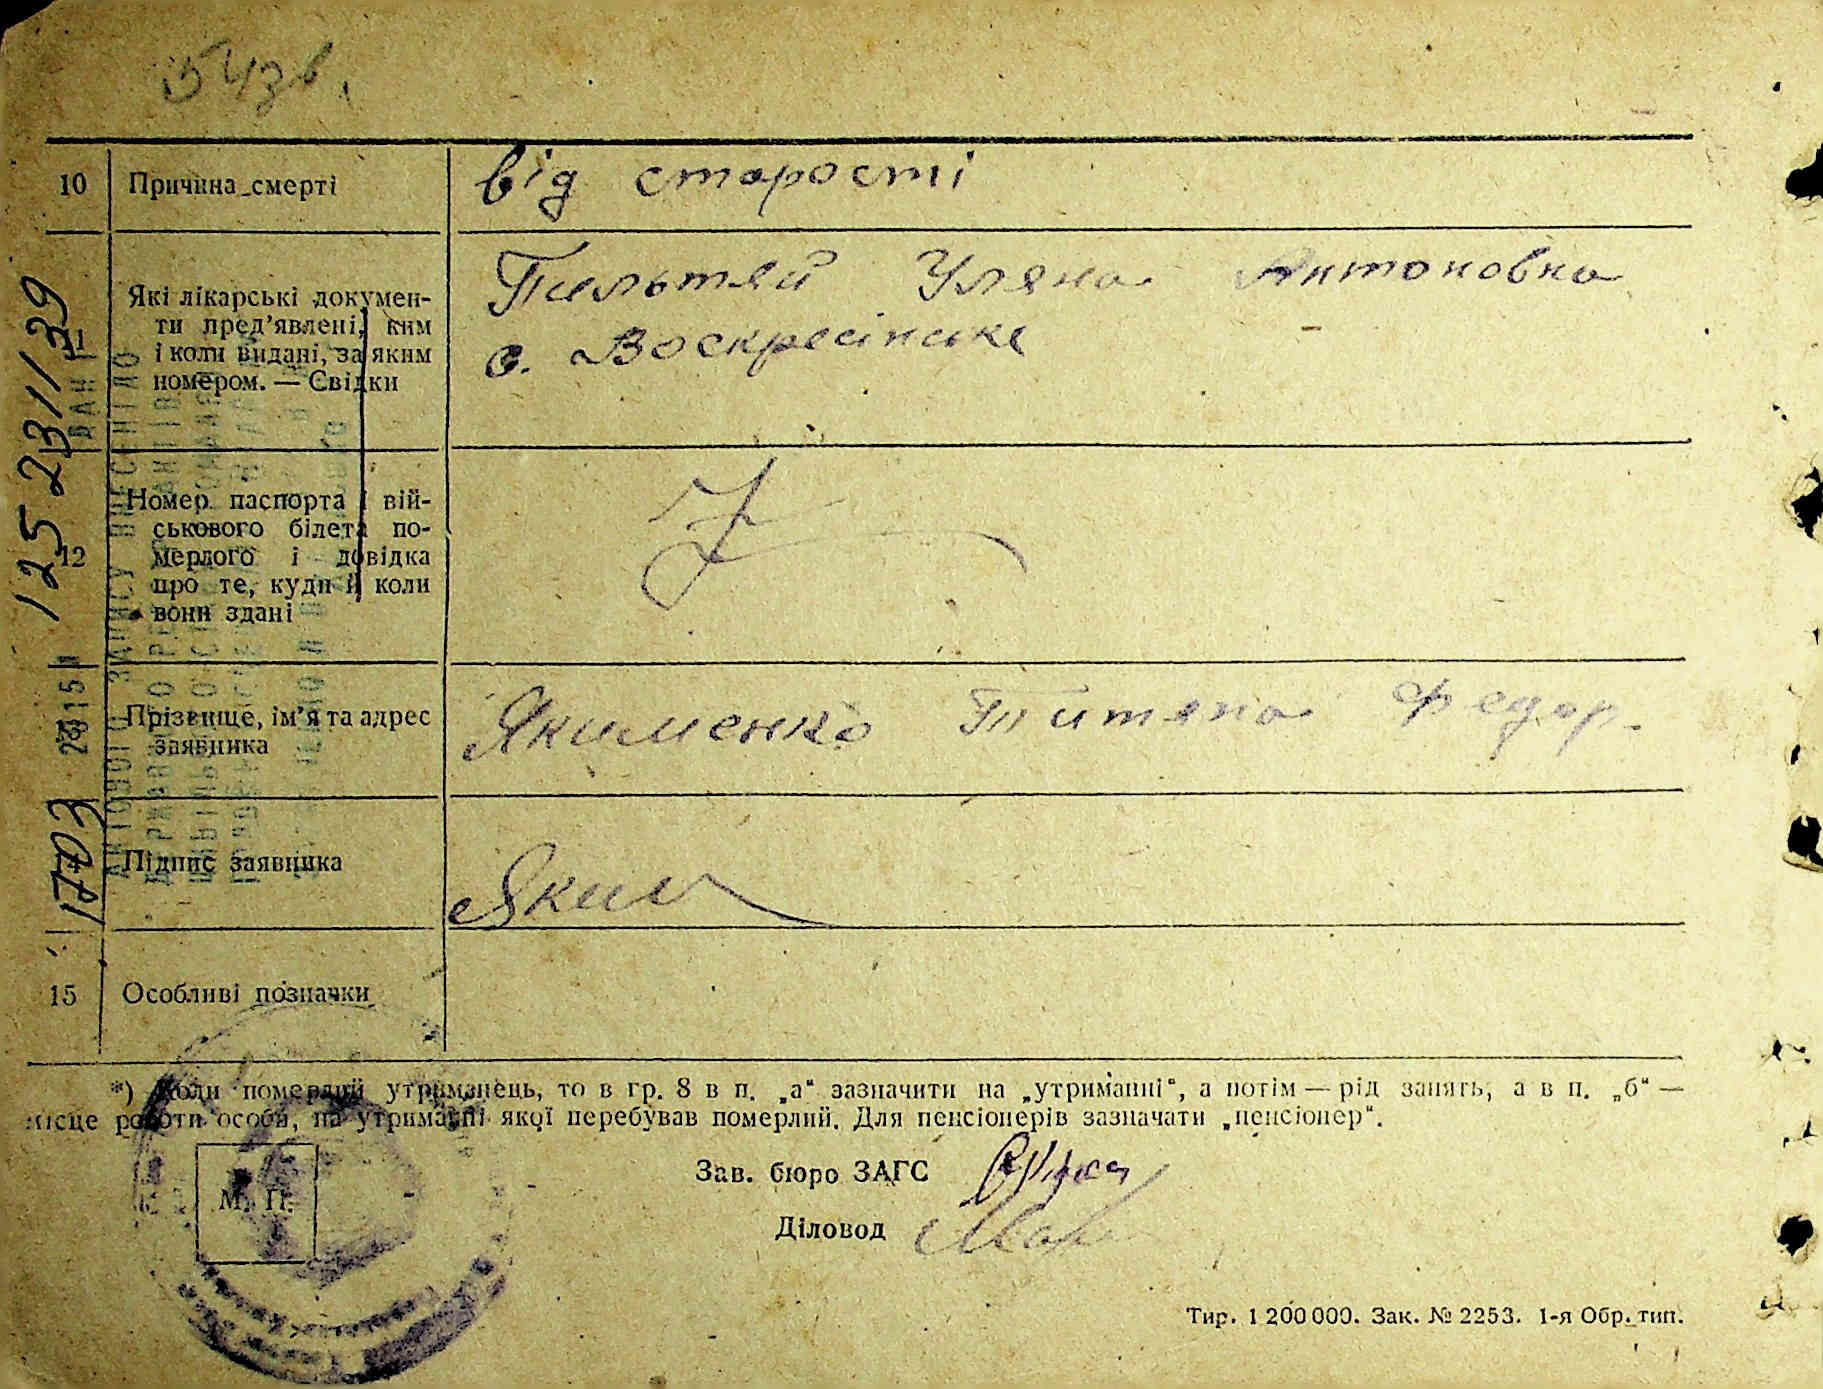 54зв.
10 Причина смерті від старости
Які лікарські докумен-
ти пред’явлені, ким
11
і коли видані, за яким
номером. — Свідки
Уляна Антоновка
с. Воскресінське
Номер паспорта і вій-
ськового білета по-
12 мерлого і довідка
про те, куди й коли
вони здані
Прізвище, ім’я та адрес
заявника
Якименко Титяна Федор.
Підпис заявника
Яким
15 Особливі позначки
*) Коли померлий утриманець, то в гр. 8 в п. „а“ зазначити на „утриманні“, а потім — рід занять, а в п. „б“ —
місце роботи особи, на утриманні якої перебував померлий. Для пенсіонерів зазначати „пенсіонер“.
М. П.
Зав. бюро ЗАГС
Діловод
Тир. 1 200 000. Зак. № 2253. 1-я Обр. тип.
АКТОВОГО ЗАПИСУ ВНЕСЕНІ ДО
125 2311/39
1703